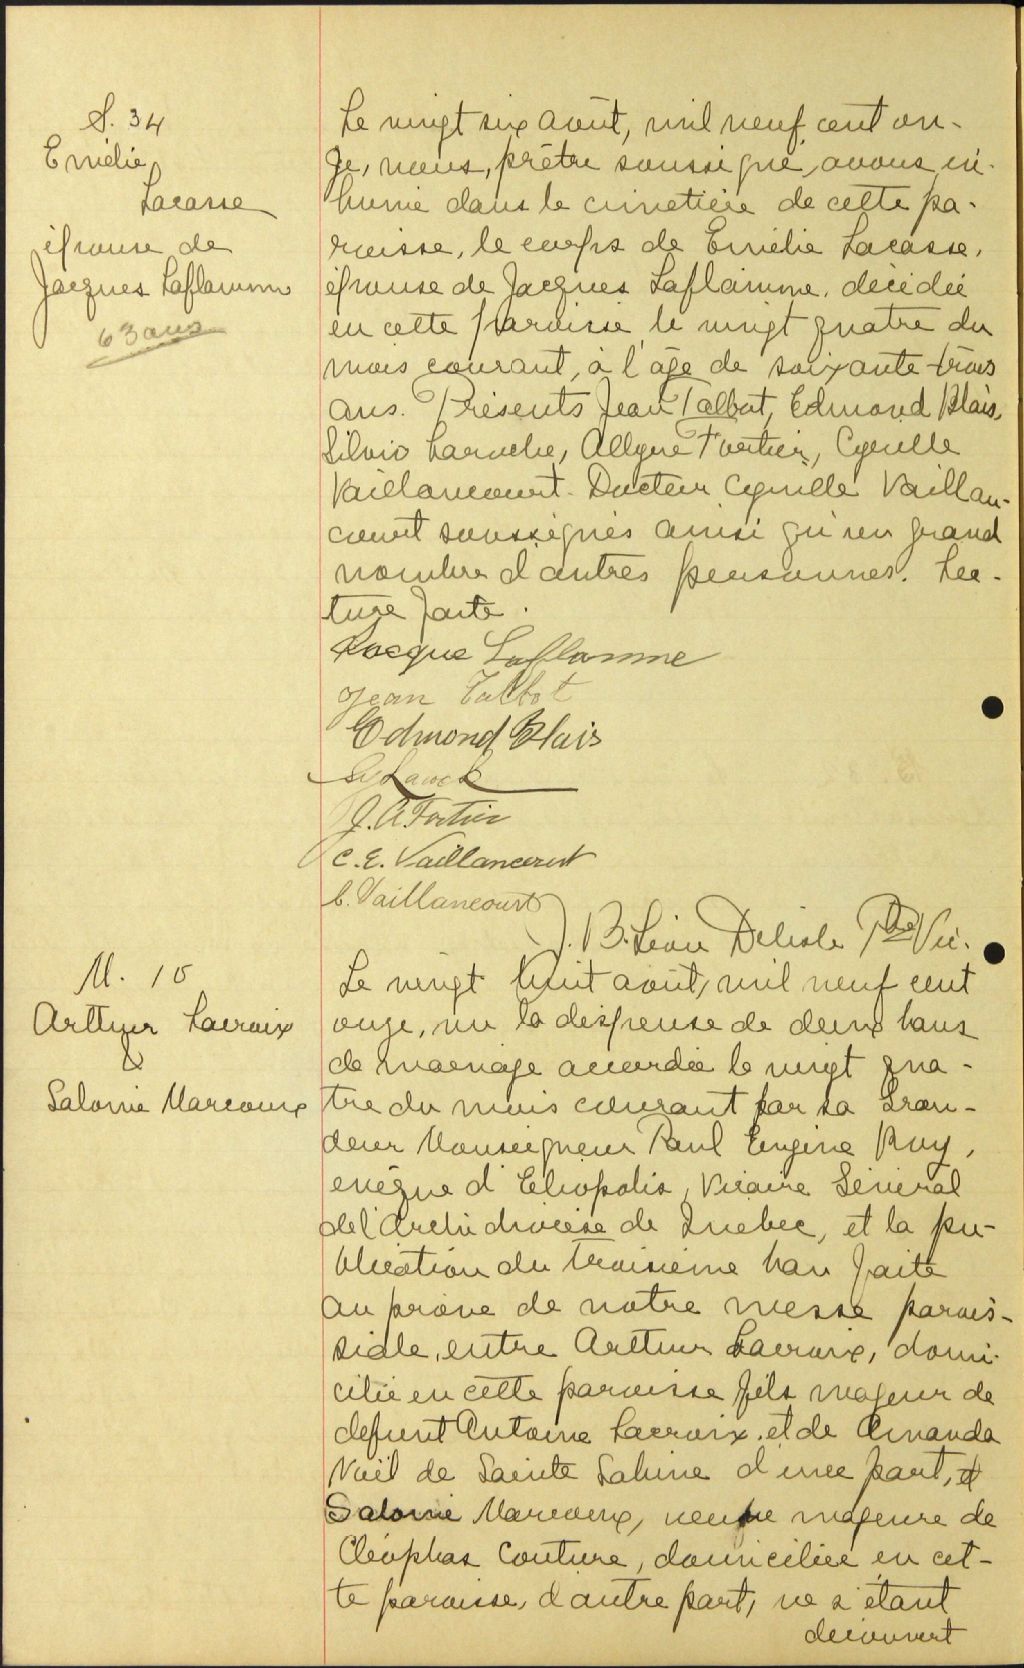 S. 34
Emélie
Lacasse
épouse de
Jacques Laflamme
63 ans
Le vingt six août, mil neuf cent on-
ze, nous, prêtre soussigné, avons in-
humé dans le cimetière de cette pa-
roisse, le corps de Emélie Lacasse,
épouse de Jacques Laflamme, décédée
en cette paroisse le vingt quatre du
mois courant, à l'âge de soixante-trois
ans. Présents Jean Talbot, Edmond Blais,
Silvio Laroche, Allyre Fortier, Cyrille
Vaillancourt. Docteur Cyrille Vaillan-
court soussignés ainsi qu'un grand
nombre d'autres personnes. Lec-
ture faite.
Jacque Laflamme
Jean Talbot
Edmond Blais
J. A. Fortier
C. E. Vaillancourt
C. Vaillancourt
J. B. Léon Delisle Ptre Vic.
M. 10
Arthur Lacroix
&
Salomé Marcoux
Le vingt huit août, mil neuf cent
onze, vu la dispense de deux bans
de mariage accordée le vingt qua-
tre du mois courant par sa Gran-
deur Monseigneur Paul Eugène Roy,
evêque d'Eleopolis, Vicaire Général
de l'Archidiocèse de Québec, et la pu-
blication du troisième ban faite
au prône de notre messe parois-
siale, entre Arthur Lacroix, domi-
cilié en cette paroisse fils majeur de
defunt Antoine Lacroix, et de Amanda
Noël de Sainte Sabine d'une part, et
Salomé Marcoux, veuve majeure de
Cléophas Couture, domiciliée en cet-
te paroisse, d'autre part, ne s'étant
découvert